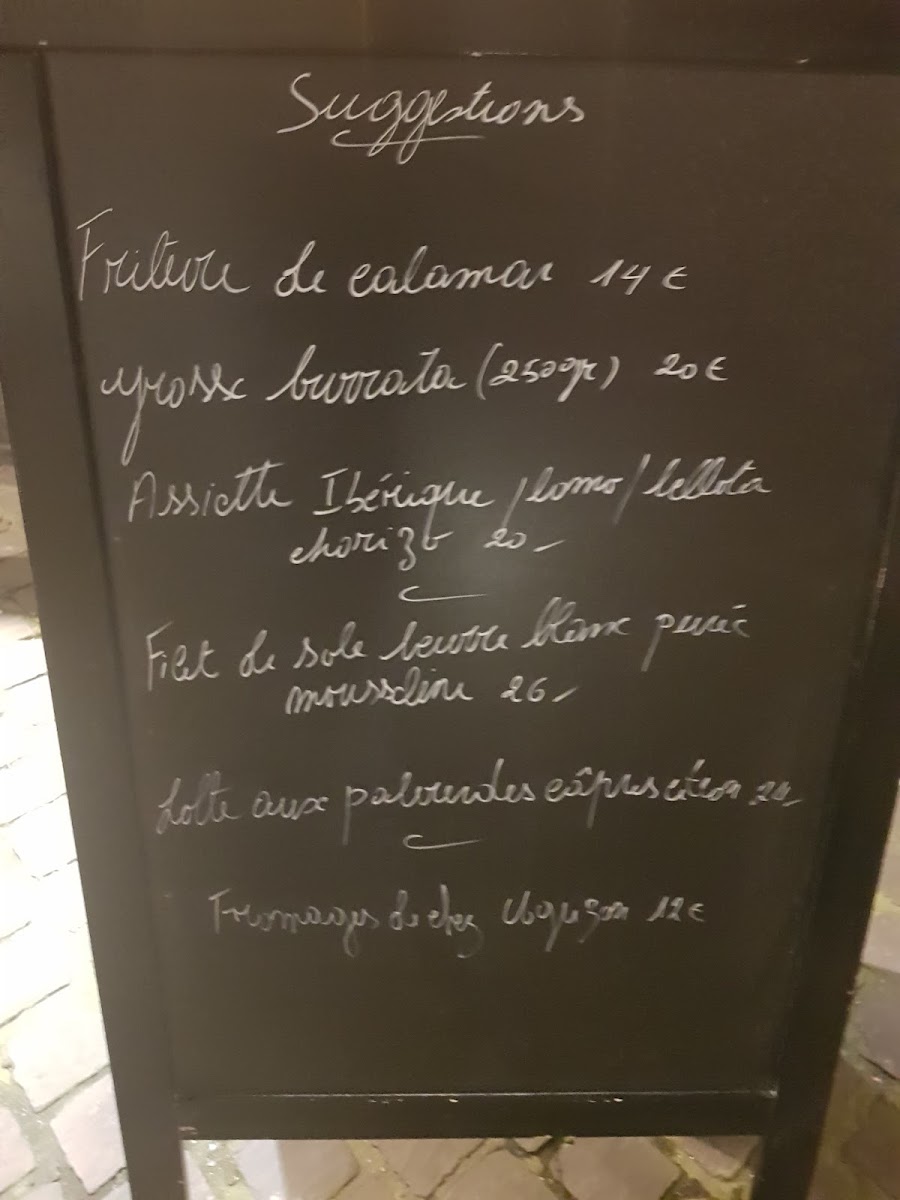 Suggestions
Friture de calamar 14€
grosse burrata (250gr) 20€
Assiette Ibérique /lomo/bellota
chorizo 20-
Filet de sole beurre blanc purée
mousseline 26-
Lotte aux palourdes câpres citron 24-
Fromages de chez 12€